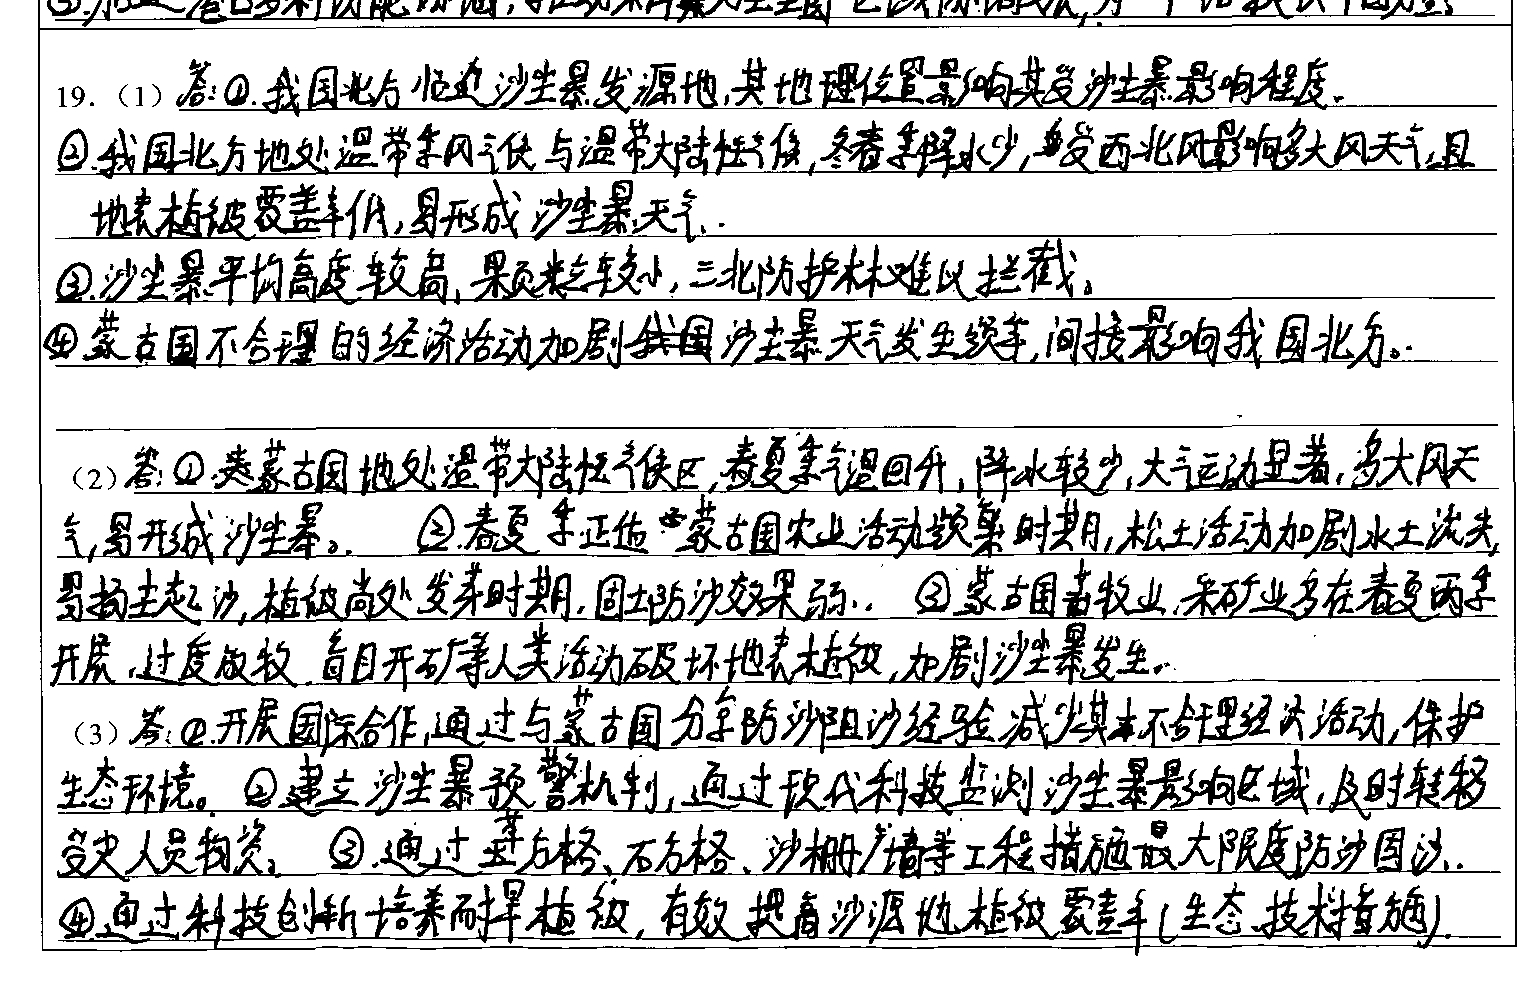 19.（1）答:①.我国北方临近沙尘暴发源地,其地理位置影响其受沙尘暴影响程度.
②.我国北方地处温带季风气候与温带大陆性气候,冬春季降水少,受西北风影响多大风天气,且
地表植被覆盖率低,易形成沙尘暴天气.
③.沙尘暴平均高度较高,颗粒较小,三北防护林难以拦截。
④蒙古国不合理的经济活动加剧沙尘暴天气发生频率,间接影响我国北方。
（2）答:①.蒙古国地处温带大陆性气候区,春夏季气温回升,降水较少,大气运动显著,多大风天
气,易形成沙尘暴。 ②.春夏季正值蒙古国农业活动频繁时期,松土活动加剧水土流失,
易扬尘起沙,植被尚处发芽时期,固土防沙效果弱. ③蒙古国畜牧业,采矿业多在春夏两季
开展,过度放牧,盲目开矿等人类活动破坏地表植被,加剧沙尘暴发生.
（3）答:①.开展国际合作,通过与蒙古国分享防沙阻沙经验减少其不合理经济活动,保护
生态环境。 ②建立沙尘暴预警机制,通过现代科技监测沙尘暴影响区域,及时转移
受灾人员物资。 ③.通过草方格、石方格、沙栅尸墙等工程措施最大限度防沙固沙.
④.通过科技创新培养耐旱植被,有效提高沙源地植被覆盖率(生态、技术措施).